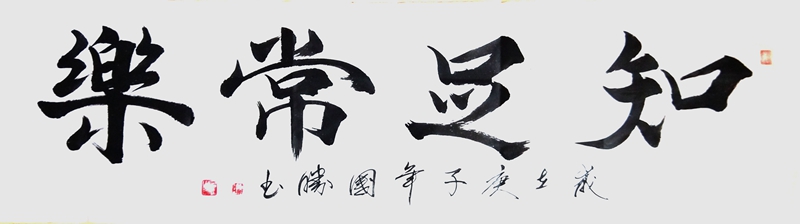 知足常樂
歲在庚子年國勝书